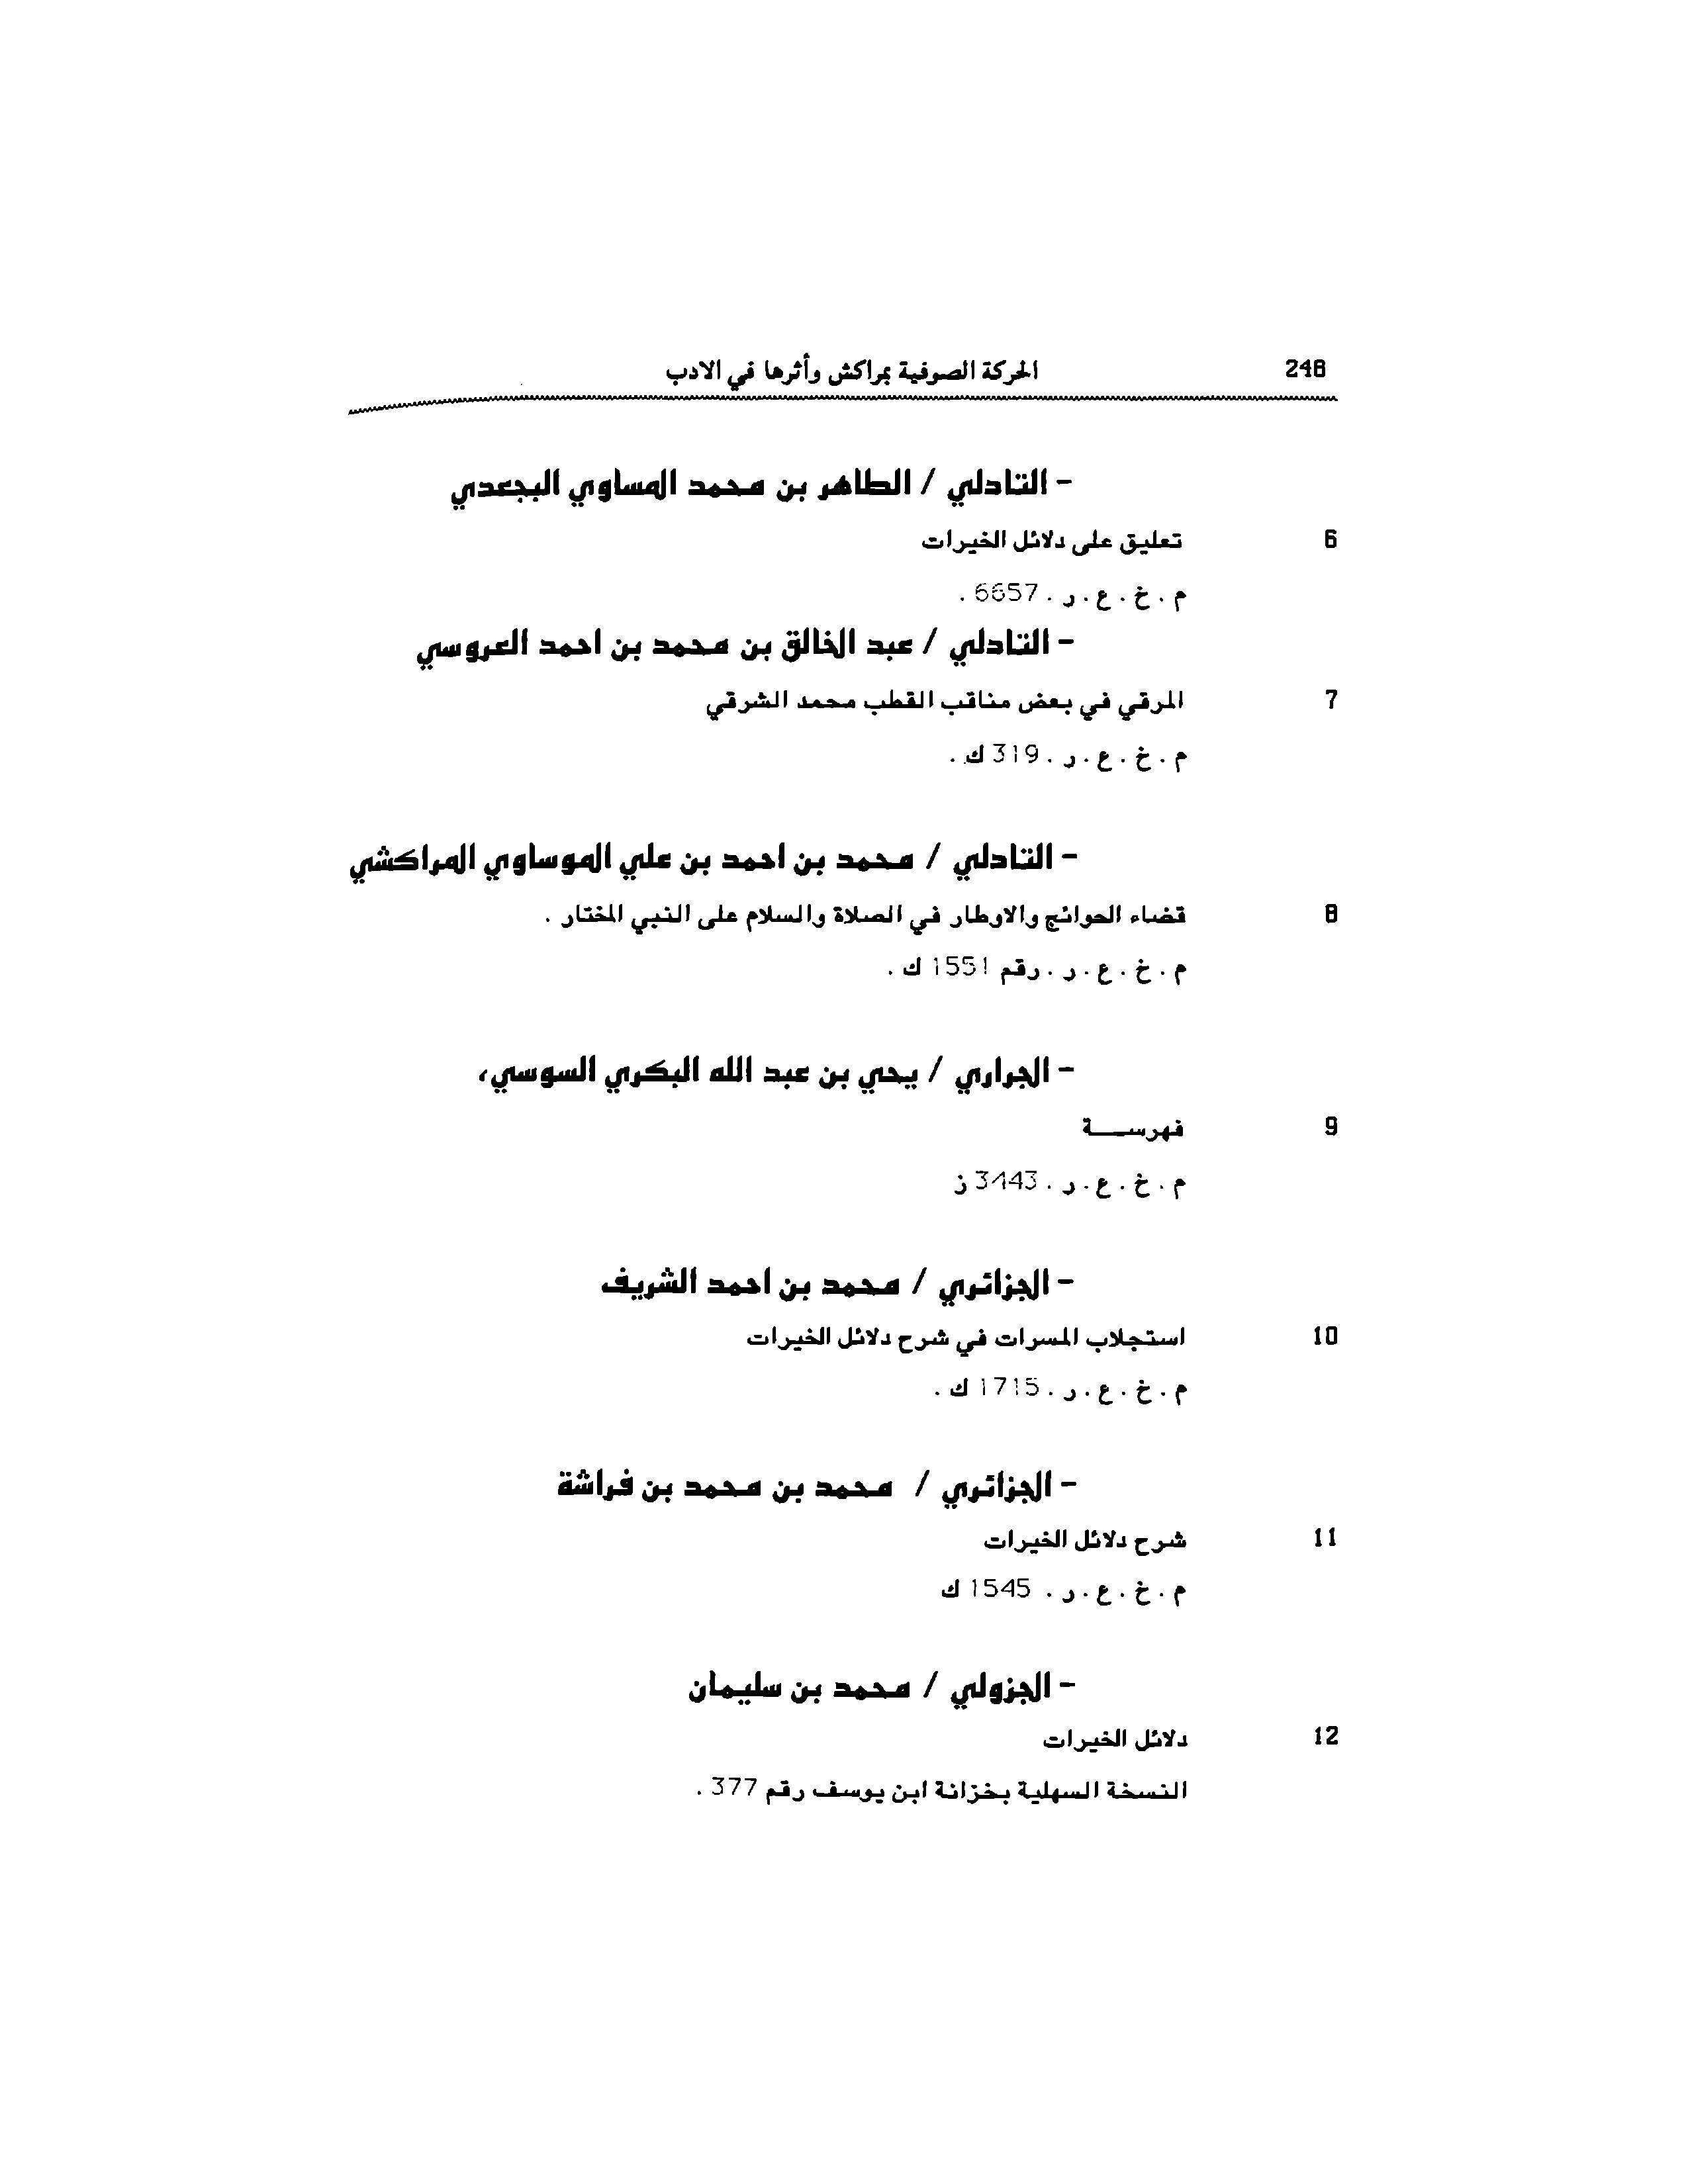 248 الحركة الصوفية بمراكش وأثرها في الادب
- التادلي / الطاهر بن محمد المساوي البجعدي
6 تعليق على دلائل الخيرات
م . خ . ع . ر . 6657 .
- التادلي / عبد الخالق بن محمد بن احمد العروسي
7 المرقي في بعض مناقب القطب محمد الشرقي
م . خ . ع . ر . 319 ك .
- التادلي / محمد بن احمد بن علي الموساوي المراكشي
8 قضاء الحوائج والاوطار في الصلاة والسلام على النبي المختار .
م . خ . ع . ر . رقم 1551 ك .
- الجراري / يحي بن عبد الله البكري السوسي،
9 فهرســـة
م . خ . ع . ر . 3443 ز
- الجزائري / محمد بن احمد الشريف
10 استجلاب المسرات في شرح دلائل الخيرات
م . خ . ع . ر . 1715 ك .
- الجزائري / محمد بن محمد بن فراشة
11 شرح دلائل الخيرات
م . خ . ع . ر . 1545 ك
- الجزولي / محمد بن سليمان
12 دلائل الخيرات
النسخة السهلية بخزانة ابن يوسف رقم 377 .